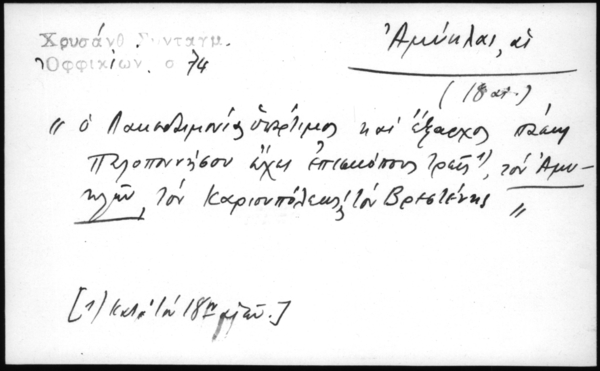 Χρυσάνθ. Συνταγμ.
Ὀφφικίων. σ 74
Ἀμύκλαι, αἱ
(18 αι.)
" ὁ Λακεδαιμονίας ὑπέρτιμος καὶ ἔξαρχος πάσης
Πελοποννήσου ἔχει ἐπισκόπους τρεῖς 1), τὸν Ἀμυ-
κλῶν, τὸν Καριουπόλεως, τὸν Βρεστένης "
[1) Κατὰ τὸν 18ον αἰῶνα.]